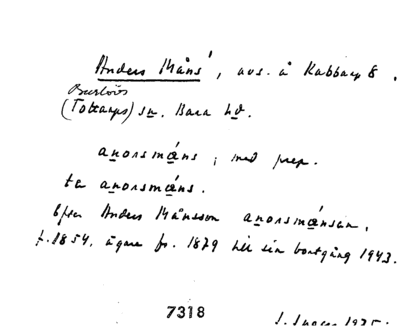 Anders Måns', avs. å Kabbarp 8.
Burlövs
(Tottarps) sn. Bara hd.
anorsmáns; med prep.
ta anorsmáns.
Efter Anders Månsson anorsmánsan,
f. 1854, ägare fr. 1879 till sin bortgång 1943.
7318